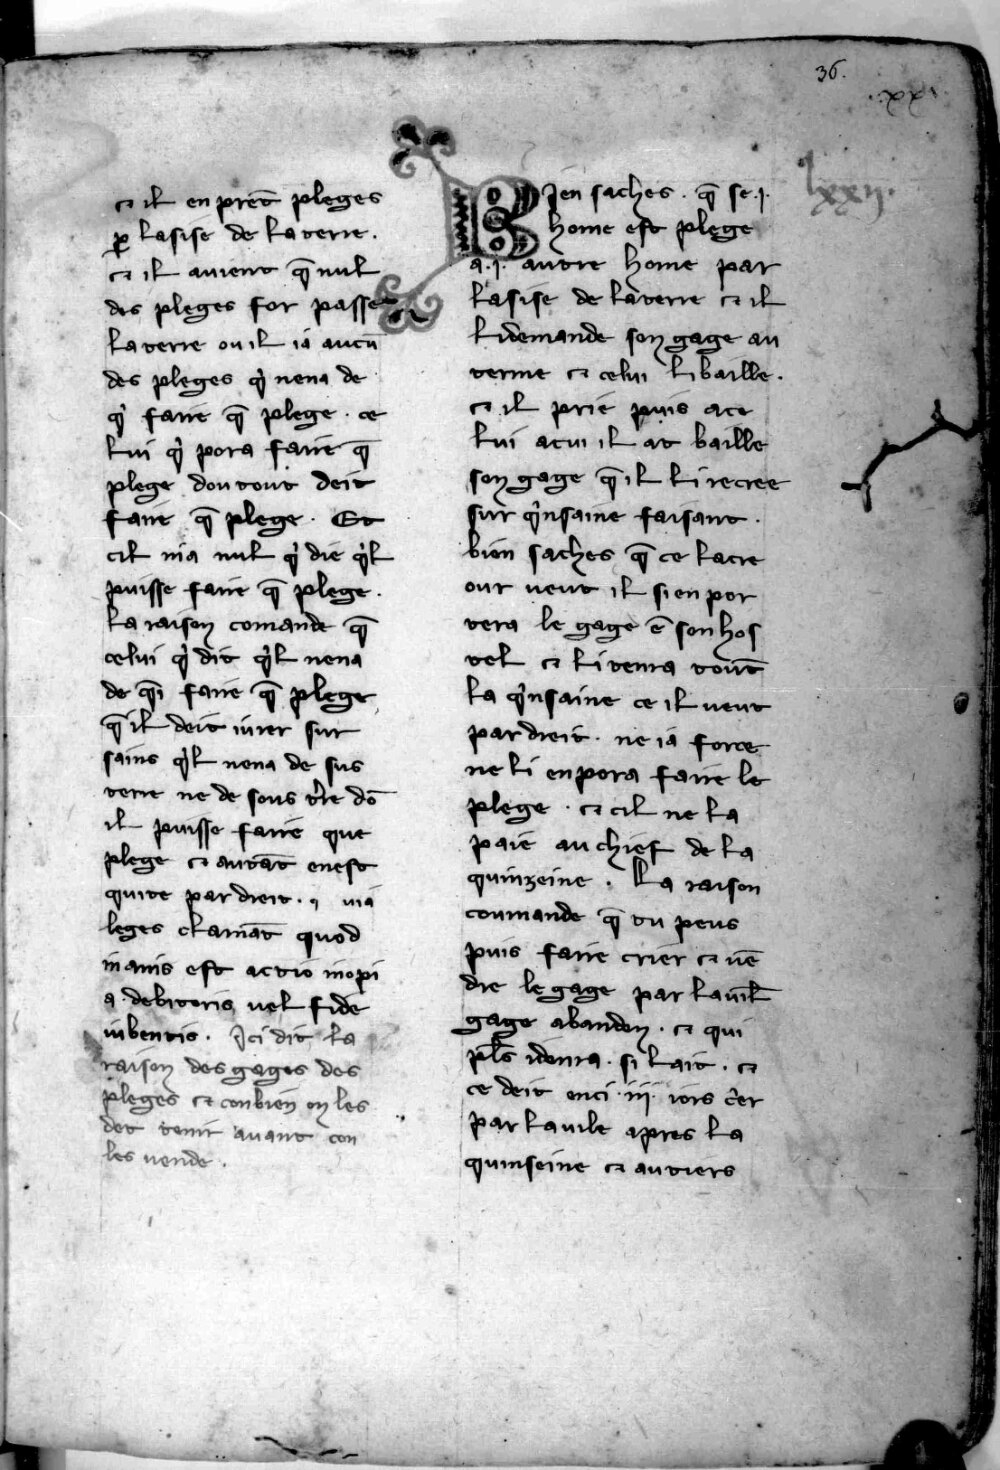 36.
.xx.
lxxij.
⁊ il en prēt pleges
ꝑ lasise de la terre .
⁊ il auient qē nul
des pleges for passe
la terre ou il ia aucū
des pleges qͥ nena de
qͥ faire qē plege . ce
lui qͥ pora faire qē
plege dou tout deit
faire qē plege . Et
cil nia nul qͥ die qͥl
puisse faire qē plege .
La raison comande qē
celui qͥ dit qͥl nena
de qī faire qē plege
qē il deit iurer sur
sains qͥl nena de sus
terre ne de sous tͥre dō
il puisse faire que
plege ⁊ autāt enest
quite par dreit .
leges clamāt quod
inanis est actio inopi
a debitoris uel fide
iubentis . Ici dit la
raison des gages des
pleges ⁊ conbien on les
det tenir auant con
les uende .
Bien saches . qē se .j.
home est plege
a .j. autre home par
lasise de la terre ⁊ il
li demande son gage au
terme ⁊ celui li baille .
⁊ il prie puis a ce
lui a cui il at baille
son gage qē il li recree
sur qͥnsaine faisant .
bien saches qē ce lacre
our ueut il si en por
tera le gage ē son hos
tel ⁊ li tenra tout
la qͥnsaine ce il ueut
par dreit . ne ia force
ne li en pora faire le
plege . ⁊ cil ne la
paie au chief de la
quinzeine . La raison
coumande qē tu peus
puis faire crier ⁊ uē
dre le gage par la uile
gage abandon . ⁊ qui
pl̄s i donra . si lait . ⁊
ce deit enci .iij. iors cͥer
par la uile apres la
quinseine ⁊ au tiers